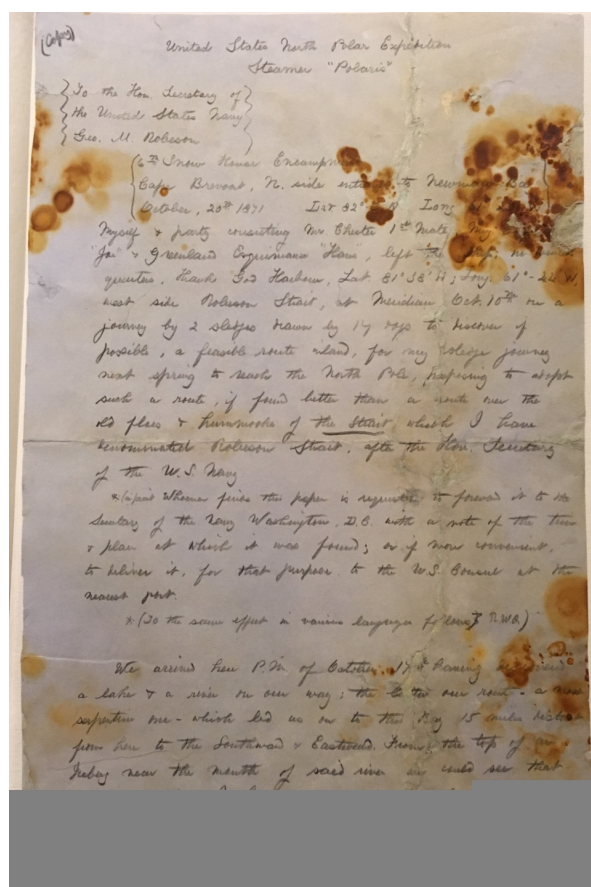 (Copy)
United States North Polar Expedition
Steamer "Polaris"
To the Hon. Secretary of
the United States Navy
Geo. M. Robeson
6th Snow House Encampment
Cape Brevoort, N. side entrance to Newman's Bay
October, 20th 1871 Lat 82° Long 61°
Myself & party consisting Mr. Chester 1st Mate, my
"Joe" & Greenland Esquimaux "Hans", left the
quarters, Thank God Harbour, Lat 81° 38' N; Long. 61°-44' W,
west side Robeson Strait, at Meridian Oct. 10th on a
journey by 2 sledges drawn by 14 dogs to discover if
possible, a feasible route inland, for my sledge journey
next spring to reach the North Pole, purposing to adopt
such a route, if found better than a route over the
old floes & hummocks of the Strait which I have
denominated Robeson Strait, after the Hon. Secretary
of the U.S. Navy
Whoever finds this paper is requested to forward it to the
Secretary of the Navy Washington, D.C. with a note of the time
& place at which it was found; or if more convenient,
to deliver it, for that purpose to the U.S. Consul at the
nearest port.
* (To the same effect in various languages follows R.W.D.)
We arrived here P.M. of October 17th having
a lake & a river on our way; the latter our route - a most
serpentine one - which led us on to this Bay 15 miles distant
from here to the Southward & Eastward. From the top of an
Iceberg near the mouth of said river we could see that